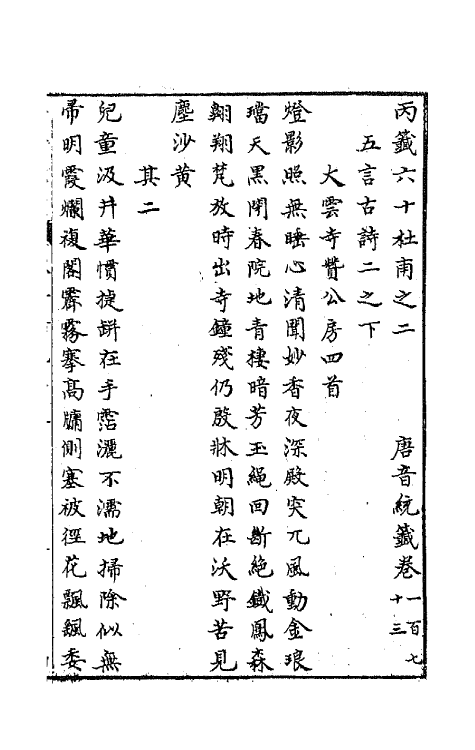 丙籤六十杜甫之二　　唐音統籤卷一百七十三
五言古詩二之下
大雲寺贊公房四首
燈影照無睡心清聞妙香夜深殿突兀風動金琅
璫天黑閉春院地青棲暗芳玉繩回斷絶鐵鳳森
翺翔梵放時出寺鐘殘仍殷牀明朝在沃野苦見
塵沙黄
其二
兒童汲井華慣捷缾在手霑灑不濡地掃除似無
帚明霞爛複閣霽霧搴高牖側塞被徑花飄颻委